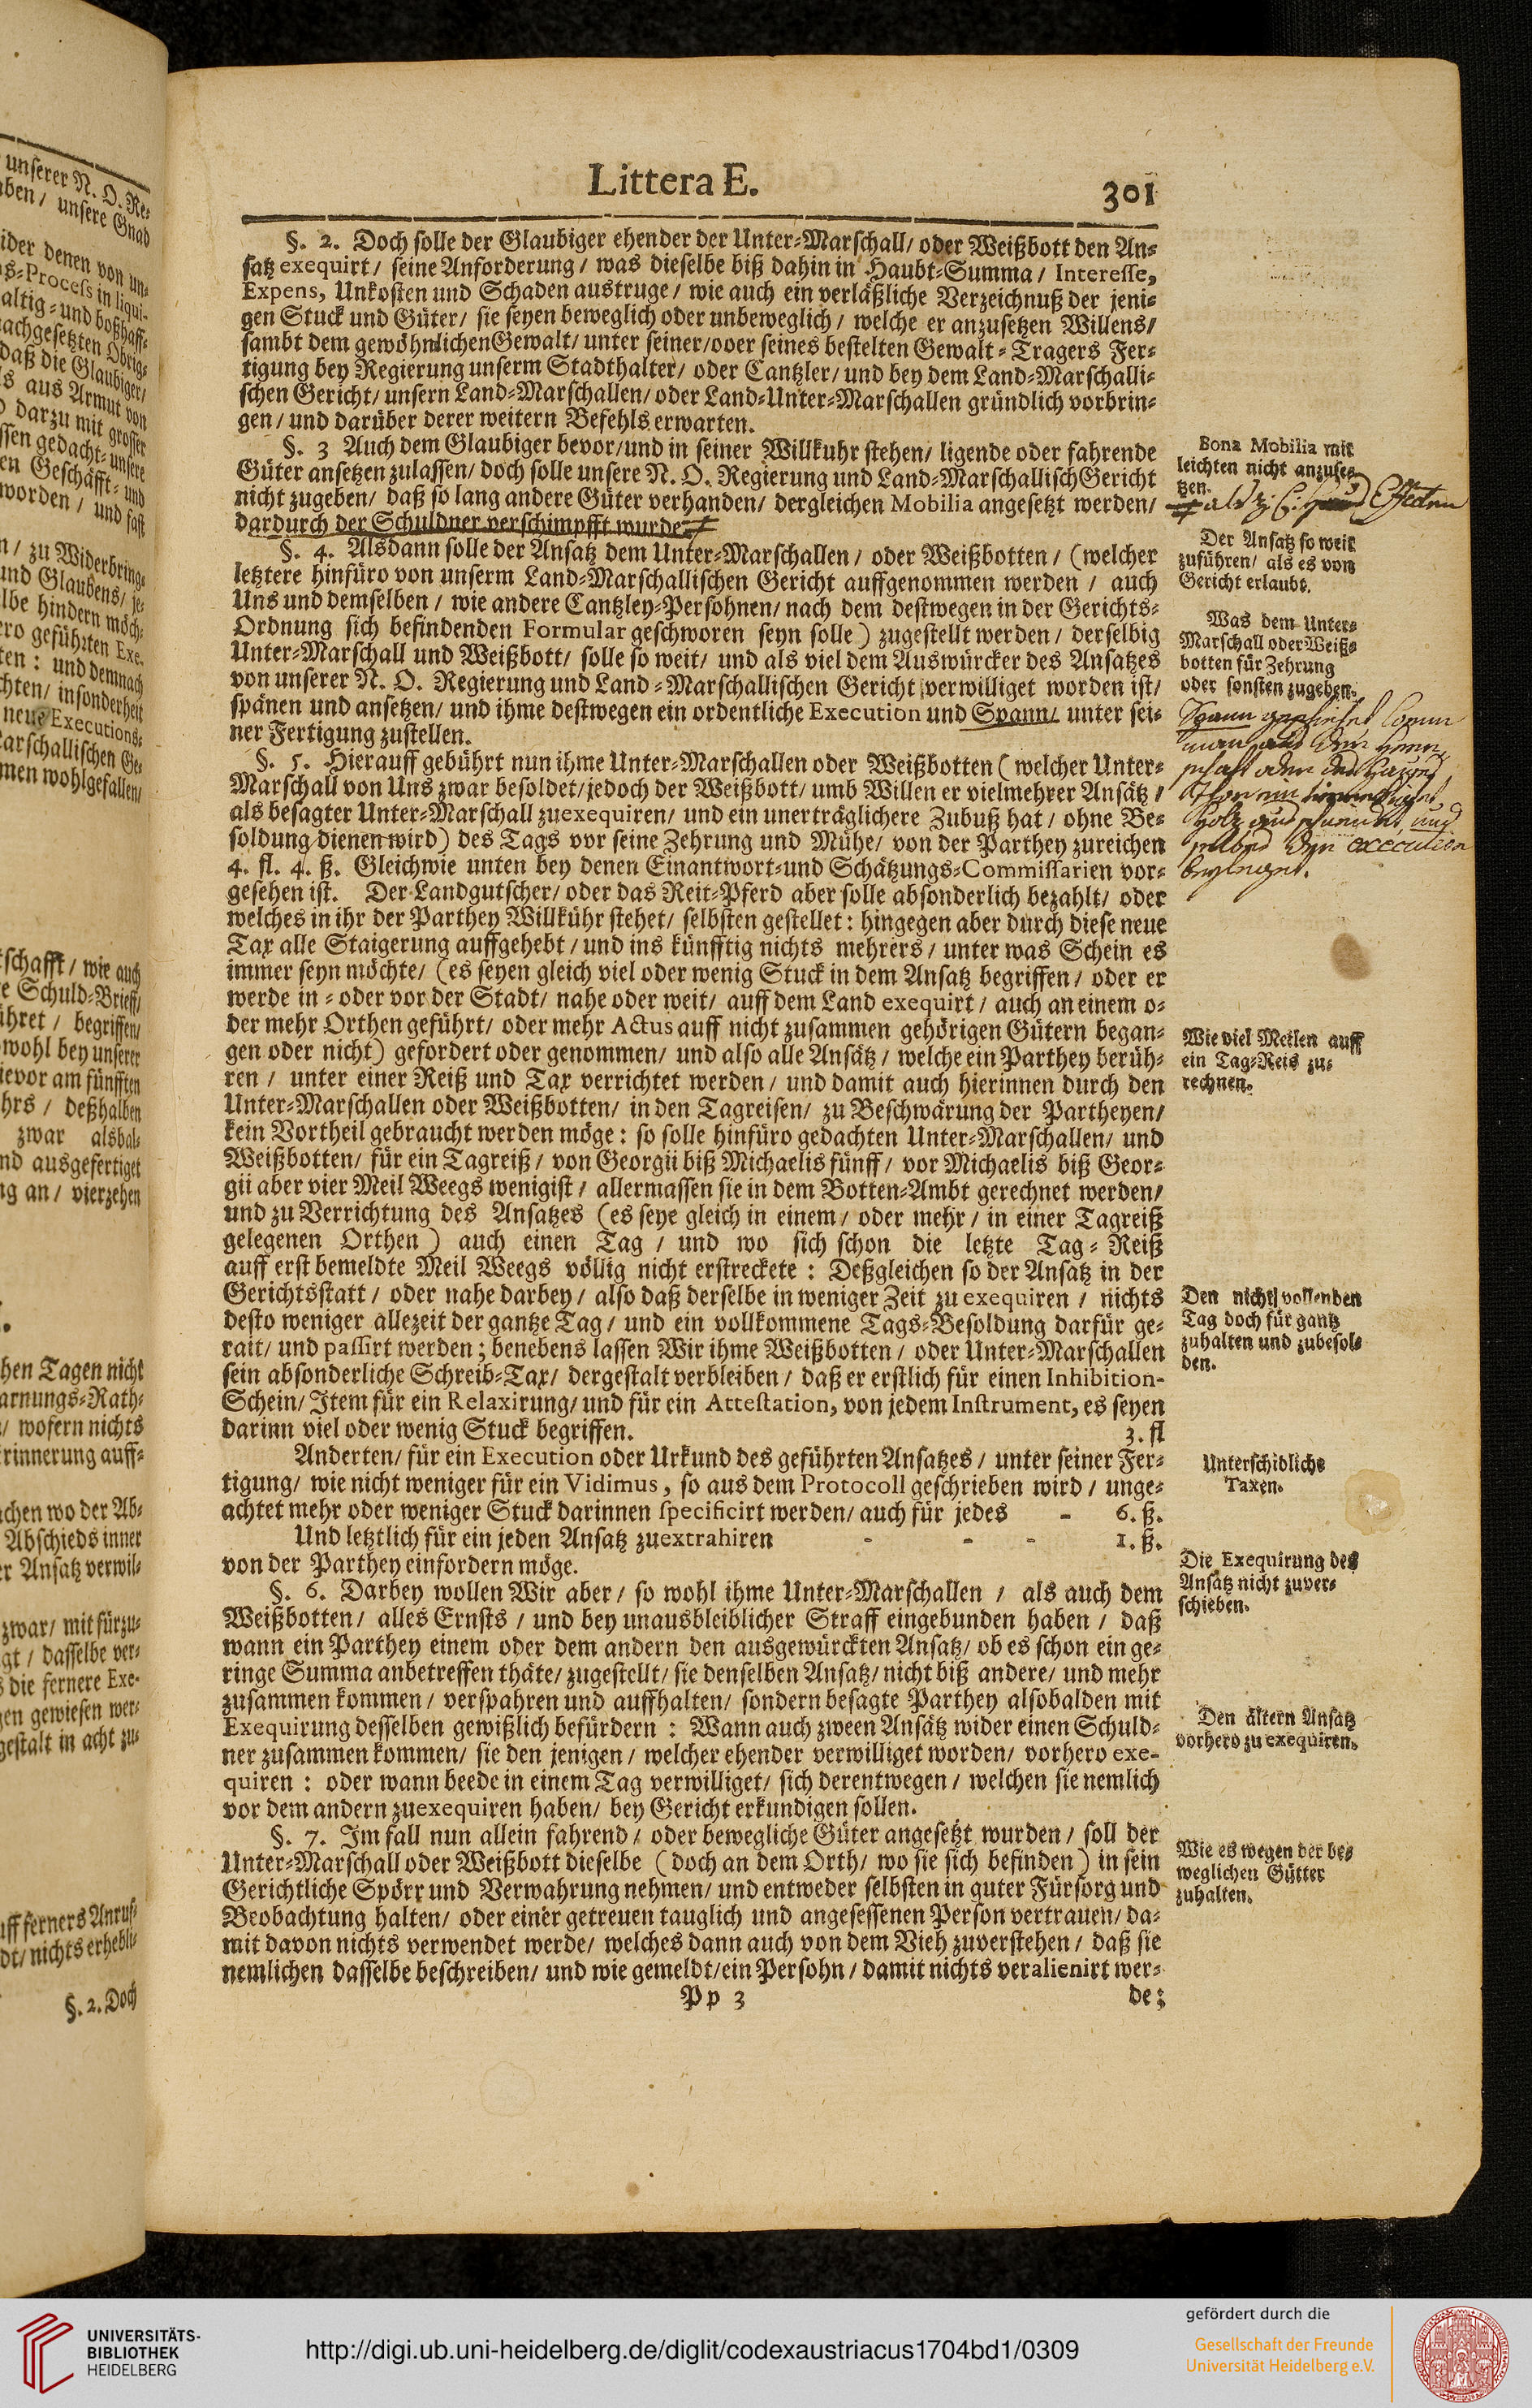 Littera E. 301
§. 2. Doch solle der Glaubiger ehender der Unter-Marschall/ oder Weißbott den An-
satz exequirt / seine Anforderung / was dieselbe biß dahin in Haubt-Summa / Interesse,
Expens, Unkosten und Schaden austruge / wie auch ein verläßliche Verzeichnuß der jeni-
gen Stuck und Güter/ sie seyen beweglich oder unbeweglich / welche er anzusetzen Willens/
sambt dem gewöhnlichen Gewalt/ unter seiner/oder seines bestelten Gewalt-Tragers Fer-
tigung bey Regierung unserm Stadthalter/ oder Cantzler/ und bey dem Land-Marschalli-
schen Gericht/ unsern Land-Marschallen/ oder Land-Unter-Marschallen gründlich vorbrin-
gen / und darüber derer weitern Befehls erwarten.
§. 3 Auch dem Glaubiger bevor/und in seiner Willkuhr stehen/ ligende oder fahrende
Güter ansetzen zulassen/ doch solle unsere N. O. Regierung und Land-Marschallisch Gericht
nicht zugeben/ daß so lang andere Güter verhanden/ dergleichen Mobilia angesetzt werden/
dardurch der Schuldner verschimpfft wurde.
§. 4. Alsdann solle der Ansatz dem Unter-Marschallen / oder Weißbotten / (welcher
letztere hinfüro von unserm Land-Marschallischen Gericht auffgenommen werden / auch
Uns und demselben / wie andere Cantzley-Persohnen/ nach dem destwegen in der Gerichts-
Ordnung sich befindenden Formular geschworen seyn solle) zugestellt werden / derselbig
Unter-Marschall und Weißbott/ solle so weit/ und als viel dem Auswürcker des Ansatzes
von unserer N. O. Regierung und Land-Marschallischen Gericht verwilliget worden ist/
spänen und ansetzen/ und ihme destwegen ein ordentliche Execution und Spann/ unter sei-
ner Fertigung zustellen.
§. 5. Hierauff gebührt nun ihme Unter-Marschallen oder Weißbotten (welcher Unter-
Marschall von Uns zwar besoldet/jedoch der Weißbott/ umb Willen er vielmehrer Ansätz /
als besagter Unter-Marschall zuexequiren/ und ein unerträglichere Zubuß hat / ohne Be-
soldung dienen wird) des Tags vor seine Zehrung und Mühe/ von der Parthey zureichen
4. fl. 4. ß. Gleichwie unten bey denen Einantwort-und Schätzungs-Commissarien vor-
gesehen ist. Der Landgutscher/ oder das Reit-Pferd aber solle absonderlich bezahlt/ oder
welches in ihr der Parthey Willkühr stehet/ selbsten gestellet: hingegen aber durch diese neue
Tax alle Staigerung auffgehebt / und ins künfftig nichts mehrers / unter was Schein es
immer seyn möchte/ (es seyen gleich viel oder wenig Stuck in dem Ansatz begriffen / oder er
werde in- oder vor der Stadt/ nahe oder weit/ auff dem Land exequirt / auch an einem o-
der mehr Orthen geführt/ oder mehr Actus auff nicht zusammen gehörigen Gütern began-
gen oder nicht) gefordert oder genommen/ und also alle Ansätz / welche ein Parthey berüh-
ren / unter einer Reiß und Tax verrichtet werden / und damit auch hierinnen durch den
Unter-Marschallen oder Weißbotten/ in den Tagreisen/ zu Beschwärung der Partheyen/
kein Vortheil gebraucht werden möge: so solle hinfüro gedachten Unter-Marschallen/ und
Weißbotten/ für ein Tagreiß / von Georgii biß Michaelis fünff / vor Michaelis biß Geor-
gii aber vier Meil Weegs wenigist / allermassen sie in dem Botten-Ambt gerechnet werden/
und zu Verrichtung des Ansatzes (es seye gleich in einem / oder mehr / in einer Tagreiß
gelegenen Orthen) auch einen Tag / und wo sich schon die letzte Tag-Reiß
auff erst bemeldte Meil Weegs völlig nicht erstreckete: Deßgleichen so der Ansatz in der
Gerichtsstatt / oder nahe darbey / also daß derselbe in weniger Zeit zu exequiren / nichts
desto weniger allezeit der gantze Tag / und ein vollkommene Tags-Besoldung darfür ge-
rait/ und passirt werden; benebens lassen Wir ihme Weißbotten / oder Unter-Marschallen
sein absonderliche Schreib-Tax/ dergestalt verbleiben / daß er erstlich für einen Inhibition-
Schein/ Item für ein Relaxirung/ und für ein Attestation, von jedem Instrument, es seyen
darinn viel oder wenig Stuck begriffen. 3. fl
Anderten/ für ein Execution oder Urkund des geführten Ansatzes / unter seiner Fer-
tigung/ wie nicht weniger für ein Vidimus, so aus dem Protocoll geschrieben wird / unge-
achtet mehr oder weniger Stuck darinnen specificirt werden/ auch für jedes - 6. ß.
Und letztlich für ein jeden Ansatz zuextrahiren - - - 1. ß.
von der Parthey einfordern möge.
§. 6. Darbey wollen Wir aber / so wohl ihme Unter-Marschallen / als auch dem
Weißbotten/ alles Ernsts / und bey unausbleiblicher Straff eingebunden haben / daß
wann ein Parthey einem oder dem andern den ausgewürckten Ansatz/ ob es schon ein ge-
ringe Summa anbetreffen thäte/ zugestellt/ sie denselben Ansatz/ nicht biß andere/ und mehr
zusammen kommen / verspahren und auffhalten/ sondern besagte Parthey alsobalden mit
Exequirung desselben gewißlich befürdern: Wann auch zween Ansätz wider einen Schuld-
ner zusammen kommen/ sie den jenigen / welcher ehender verwilliget worden/ vorhero exe-
quiren: oder wann beede in einem Tag verwilliget/ sich derentwegen / welchen sie nemlich
vor dem andern zuexequiren haben/ bey Gericht erkundigen sollen.
§. 7. Im fall nun allein fahrend / oder bewegliche Güter angesetzt wurden / soll der
Unter-Marschall oder Weißbott dieselbe (doch an dem Orth/ wo sie sich befinden) in sein
Gerichtliche Spörr und Verwahrung nehmen/ und entweder selbsten in guter Fürsorg und
Beobachtung halten/ oder einer getreuen tauglich und angesessenen Person vertrauen/ da-
mit davon nichts verwendet werde/ welches dann auch von dem Vieh zuverstehen / daß sie
nemlichen dasselbe beschreiben/ und wie gemeldt/ein Persohn / damit nichts veralienirt wer-
Pp 3 de;
Bona Mobilia mit
leichten nicht anzuset-
tzen.
Effecten
Der Ansatz so weit
zuführen/ als es von
Gericht erlaubt.
Was dem Unter-
Marschall oder Weiß-
botten für Zehrung
oder sonsten zugeben.
Spann geschiehet
man aus
Holz
execution
Wie viel Meilen auff
ein Tag-Reis zu-
rechnen.
Den nicht vollenden
Tag doch für gantz
zuhalten und zubesol-
den.
Unterschidliche
Taxen.
Die Exequirung des
Ansatz nicht zuver-
schieben.
Den ältern Ansatz
vorhero zu exequiren.
Wie es wegen der be-
weglichen Gütter
zuhalten.
unserer N. O. Re-
unsere Gnad
ider denen von un-
s-Process in liqui-
altig-und boßhaff-
achgesetzten Obrig-
daß die Glaubiger/
s aus Armut von
darzu mit grosser
ssen gedacht-unsere
en Geschäfft-und
worden / und fast
/ zu Widerbring-
und Glaubens/ je-
lbe hindern möch-
ro geführten Exe-
ten: und demnach
chten/ insonderheit
neue Executions-
arschallischen Ge-
men wohlgefallen/
schafft / wie auch
e Schuld-Brieff/
ühret / begriffen/
wohl bey unserer
ievor am fünfften
hrs / deßhalben
zwar alsbal-
nd ausgefertiget
ng an / vierzehen
hen Tagen nicht
arnungs-Rath-
/ wofern nichts
rinnerung auff-
chen wo der Ab-
Abschieds inner
r Ansatz verwil-
zwar/ mit fürzu-
gt / dasselbe ver-
die fernere Exe-
en gewiesen wer-
gestalt in acht zu-
uff ferners Anruf-
dt/ nichts erhebli-
§. 2. Doch
UNIVERSITÄTS-
BIBLIOTHEK
HEIDELBERG
http://digi.ub.uni-heidelberg.de/diglit/codexaustriacus1704bd1/0309
gefördert durch die
Gesellschaft der Freunde
Universität Heidelberg e.V.